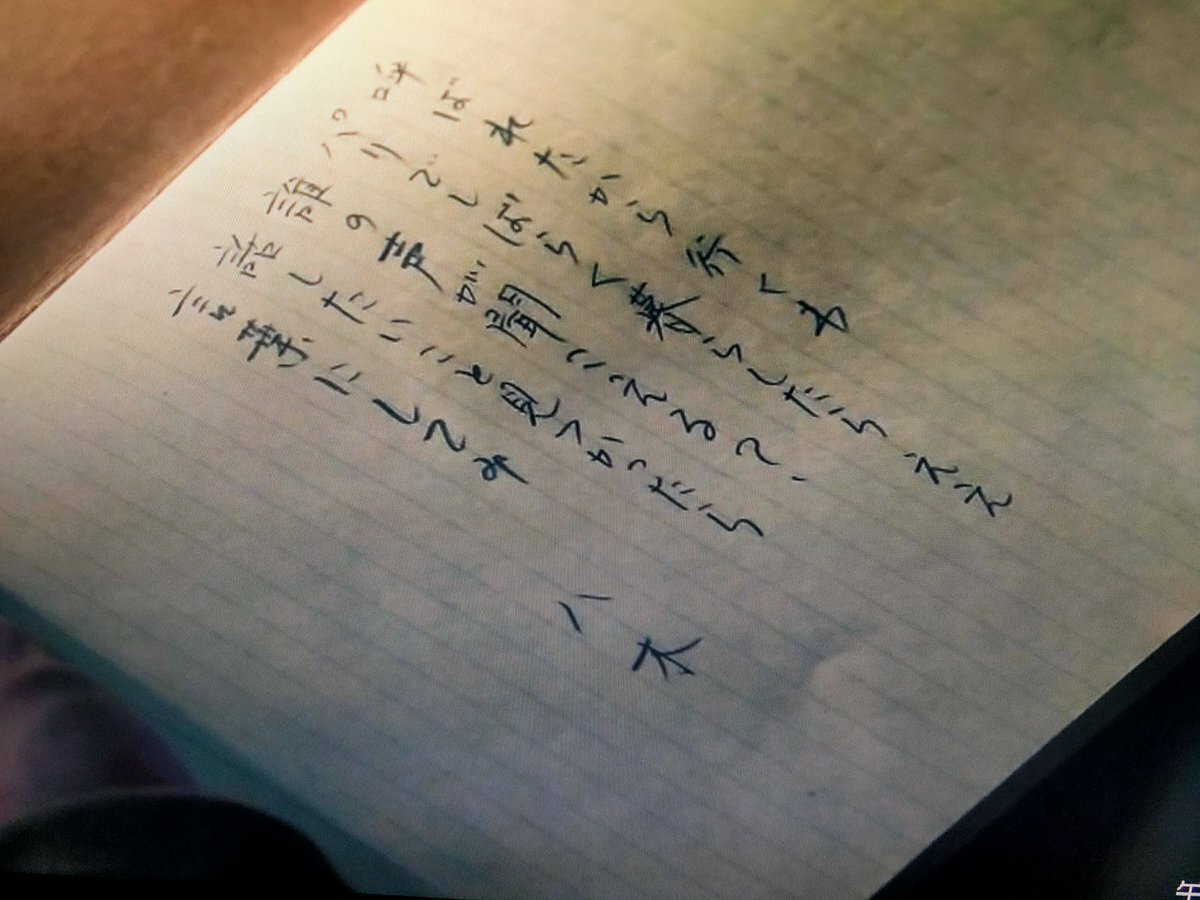 呼ばれたから行くわ
パリでしばらく暮らしたらええ
誰の声が聞こえる?
話したいこと見つかったら
言葉にしてね
八木
午